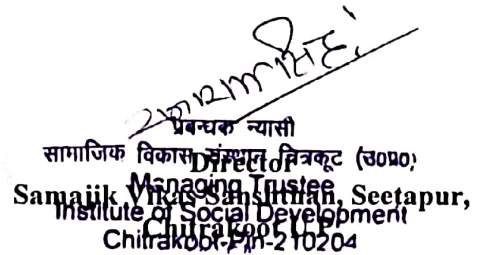 प्रबन्धक न्यासी
सामाजिक विकास संस्थान चित्रकूट (उ०प्र०)
Director
Managing Trustee
Samajik Vikas Sansthan, Seetapur,
Institute of Social Development
Chitrakoot U.P.
Chitrakoot-Pin-210204